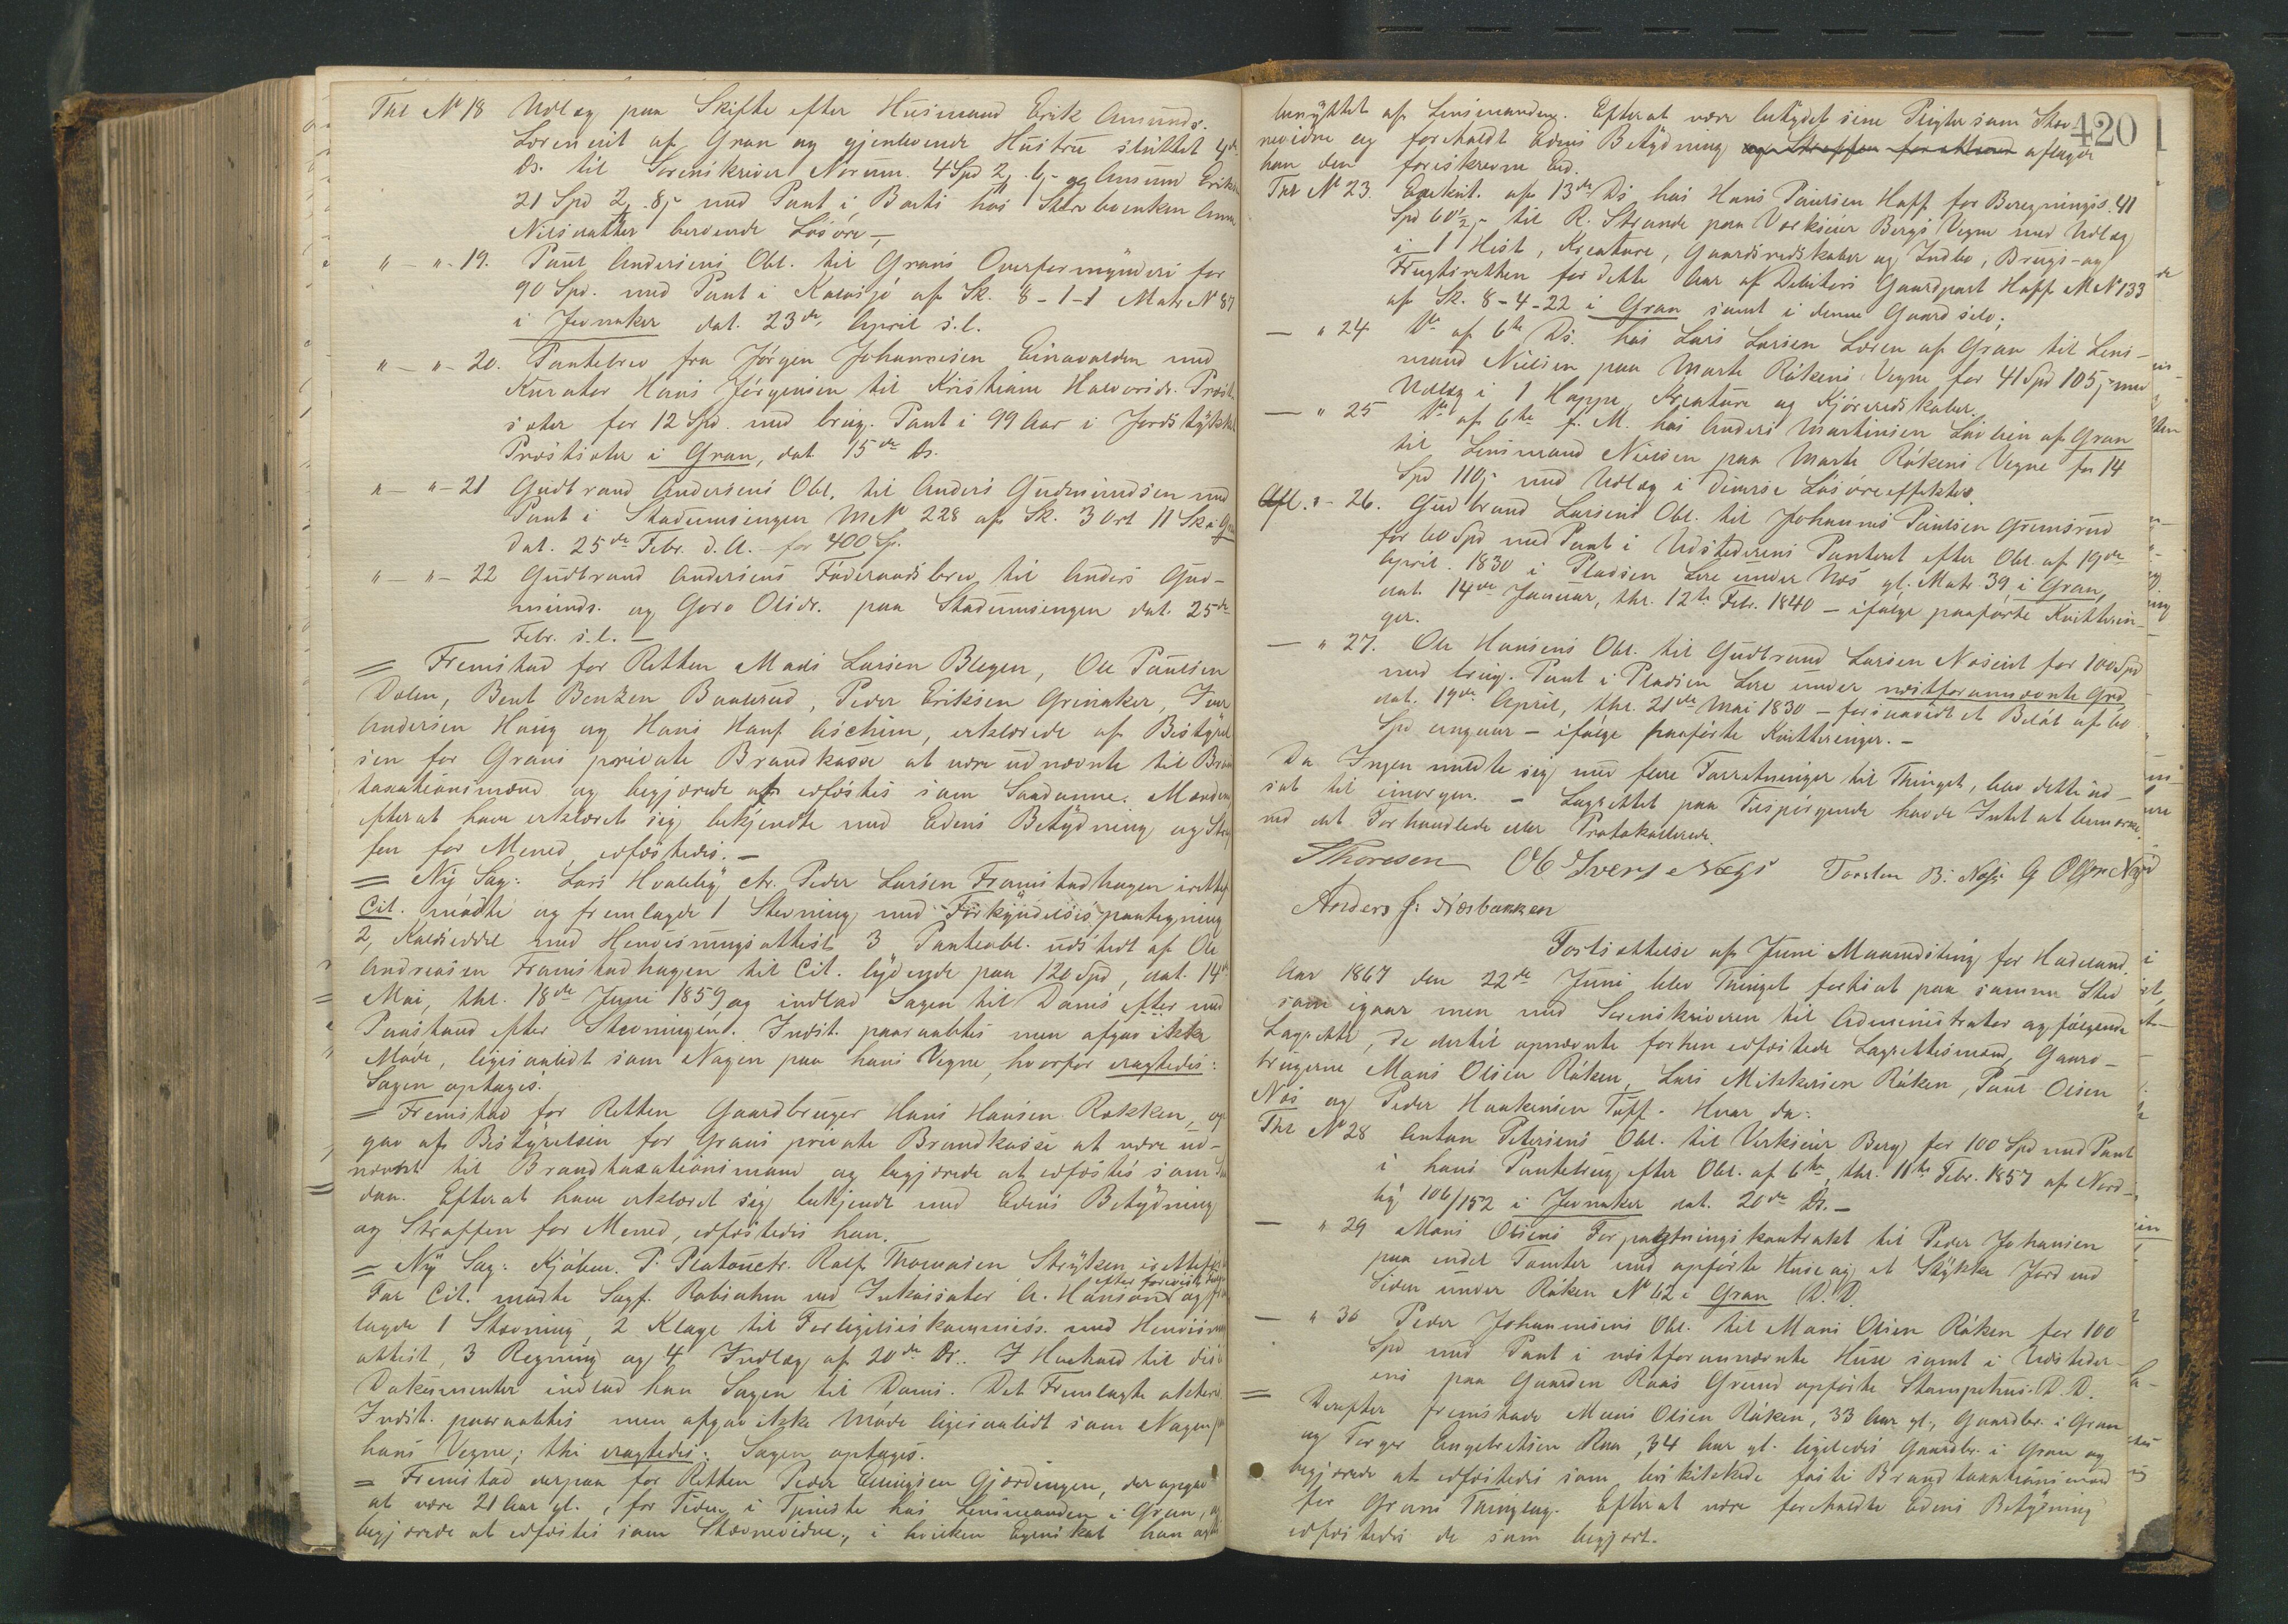 Thl No 18 Udlæg paa Skifte efter Husmand Erik Amunds.
Loreneiet af Gran og gjenlevende Hustru sluttet 4de
ds. til Sorenskriver Norum. 4 Spd 2, 6,- og Amund Eriks
21 Spd 2, 8,- med Pant i Boets hos Stervboenken Anne
Nilsdatter beroende Løsøre,-
" - " - 19. Paul Andersens Obl. til Grans Overformynderi for
90 Spd. med Pant i Kalosjø af Sk. 8-1-1 Matr No 87
i Jevnaker dat. 23de April s.l.
" - " - 20. Pantebrev fra Jørgen Johannesen Einavolden med
Kurator Hans Jørgensen til Kristiane Halvorsdr. Præst
sæter for 12 Spd. med brug. Pant i 99 Aar i Jordstykket
Præstsæter i Gran, dat 15de ds.
" - " - 21 Gudbrand Andersens Obl. til Anders Gudmundsen med
Pant i Stadumsengen M No 228 af Sk. 3 Ort 11 Sk i Gran
Dat. 25de Febr. d.A. - for 400 Sp.
" - " - 22 Gudbrand Andersens Føderaadsbrev til Anders Gud-
munds. og Goro Olsdr. paa Stadumsengen dat. 25de
Febr. s.l. -
= Fremstod for Retten Mads Larsen Blegen, Ole Paulsen
Dolen, Bent Bentzen Baalerud, Peder Eriksen Grinaker, Iver
Andersen Haug og Hans Hans Aschim, erklærede af Bestyrel
sen for Grans private Brandkasse at være udnævnte til Bran
taxationsmænd og begjærede at edfæstes som Saadanne. Mændene
efterat have erklæret sig bekjendte med Edens Betydning og Straf
fen for Mened, edfæstedes. -
= Ny Sag: Lars Hvaleby ctr. Peder Larsen Framstadhagen irettef
Cit. mødte og fremlagde 1 Stevning med Forkyndelsespaategning
2, Kaldseddel med Henvisningsattest 3 Panteobl. udstedt af Ole
Andreasen Framstadhagen til Cit. lydende paa 120 Spd, dat. 14de
Mai, thl. 18de Juni 1859 og indlod Sagen til Doms efter med
Paastand efter Stevningen. Indst. paaraabtes men afgav ikke
Møde, ligesaalidt som Nogen paa hans Vegne, hvorfor eragtedes:
Sagen optages.
= Fremstod for Retten Gaardbruger Hans Hansen Rækken, op
gav af Bestyrelsen for Grans private Brandkasse at være ud-
nævnt til Brandtaxationsmand og begjærede at edfæstes som Saa
dan. Efterat have erklæret sig bekjendt med Edens Betydning
og Straffen for Mened, edfæstedes han.
= Ny Sag: Kjøbm. P. Platou ctr. Ralf Thomasen Strykens irettefør
For Cit. mødte Sagf. Robsahm ved Inkassator A. Hansen efter foreviste Fuldm og frem
lagde 1 Stævning, 2 Klage til Forligelseskommiss. med Henvisnings
attest, 3 Regning og 4 Indlæg af 20de ds. I Henhold til disse
Dokumenter indlod han Sagen til Doms. Det Fremlagte akteres
Indst. paaraabtes men afgav ikke Møde ligesaalidt som Nogen paa
hans Vegne; thi eragtedes: Sagen optages.
= Fremstod derpaa for Retten Peder Gjærdingen, der opgav
at være 21 Aar gl., for Tiden i Tjeneste hos Lensmanden i Gran, og
begjærede at edfæstes som Stævnevidne, i hvilken Egenskab han agtes
420
benyttet af Lensmanden. Efterat være betydet sine Pligter som Stev
nevidne og foreholdt Edens Betydning og Straffen for Mened aflagde
han den foreskrevne Ed.
Thl No 23. Exekut. af 13de ds hos Hans Paulsen Hoff for Beregnings. 41
Spd 60 1/2,- til R. Strande paa Vorkseier Bergs Vegne med Udlæg
i 1 Hest, Kreature, Gaardsredskaber og Indbo, Brugs- og
Frugtsretten for dette Aar af Debitors Gaardpart Hoff M No 133
af Sk. 8-4-22 i Gran samt i denne Gaard selv;
- " 24 Do af 6te ds. hos Lars Larsen Loren af Gran til Lens-
mand Nielsen paa Marte Røkens Vegne for 41 Spd 105,- med
Udlæg i 1 Hoppe, Kreature og Kjøreredskaber.
- " 25 Do af 6te f. M. hos Anders Martinsen Løvlien af Gran
til Lensmand Nielsen paa Marte Røkens Vegne for 14
Spd 110,- med Udlæg i diverse Løsøreeffekter.
Afl. " - 26. Gudbrand Larsens Obl. til Johannes Paulsen Grimsrud
for 60 Spd med Pant i Udstederens Panteret efter Obl. af 19de
April 1830 i Pladsen Lere under Næs gl. Matr. 39 i Gran,
dat. 14de Januar, thl. 12te Febr. 1840 - ifølge paaførte Kvitterin-
ger.
- " 27. Ole Hansens Obl. til Gudbrand Larsen Næseiet for 100 Spd
med brug. Pant i Pladsen Lere under næstforannævnte Grd,
dat. 19de April, thl. 21de Mai 1830 - forsaavidt et Beløb af 60
Spd angaar - ifølge paaførte Kvitteringer. -
Da Ingen meldte sig med flere Forretninger til Thinget, blev dette ud-
sat til imorgen. - Lagrettet paa Tilspørgende havde Intet at bemærke
ved det Forhandlede eller Protokollerede.
Thoresen Ole Iversen Negs Torsten B. Næss G Olsen Næss
Anders J. Næsbakken
Fortsættelse af Juni Maanedsting for Hadeland.
Aar 1867 den 22de Juni blev Thinget fortsat paa samme Sted
som igaar men med Sorenskriveren til Administrator og følgende
Lagrette, de dertil opnævnte forhen edfæstede Lagrettesmænd, Gaard-
brugerne Mons Olsen Røken, Lars Mikkelsen Røken, Paul Olsen
Næs og Peder Haakensen Toff. Hvor da:
Thl No 28 Anton Petersens Obl. til Verkseier Berg for 100 Spd med Pant
i hans Pantebrug efter Obl. af 6te, thl. 11te Febr. 1857 af Nord-
by 106/152 i Jevnaker dat. 20de ds. -
- " 29 Mons Olsens Forpagtningskontrakt til Peder Johansen
paa endel Tomter med opførte Huse og et Stykke Jord ved
Siden under Røken No 62 i Gran D.D.
- " 30 Peder Johannesens Obl. til Mons Olsen Røken for 100
Spd med Pant i næstforannævnte Huse samt i Udsteder-
ens paa Gaarden Raas Grund opførte Stampehus. D.D.
= Derefter fremstode Mons Olsen Røken, 33 Aar gl., Gaardbr. i Gran
og Torger Engebretsen Raa, 34 Aar gl. ligeledes Gaardbr. i Gran og
begjærede at edfæstedes som beskikkede faste Brandtaxationsmænd
for Grans Thinglag. Efterat være foreholdte Edens Betydning
edfæstedes de som begjært.